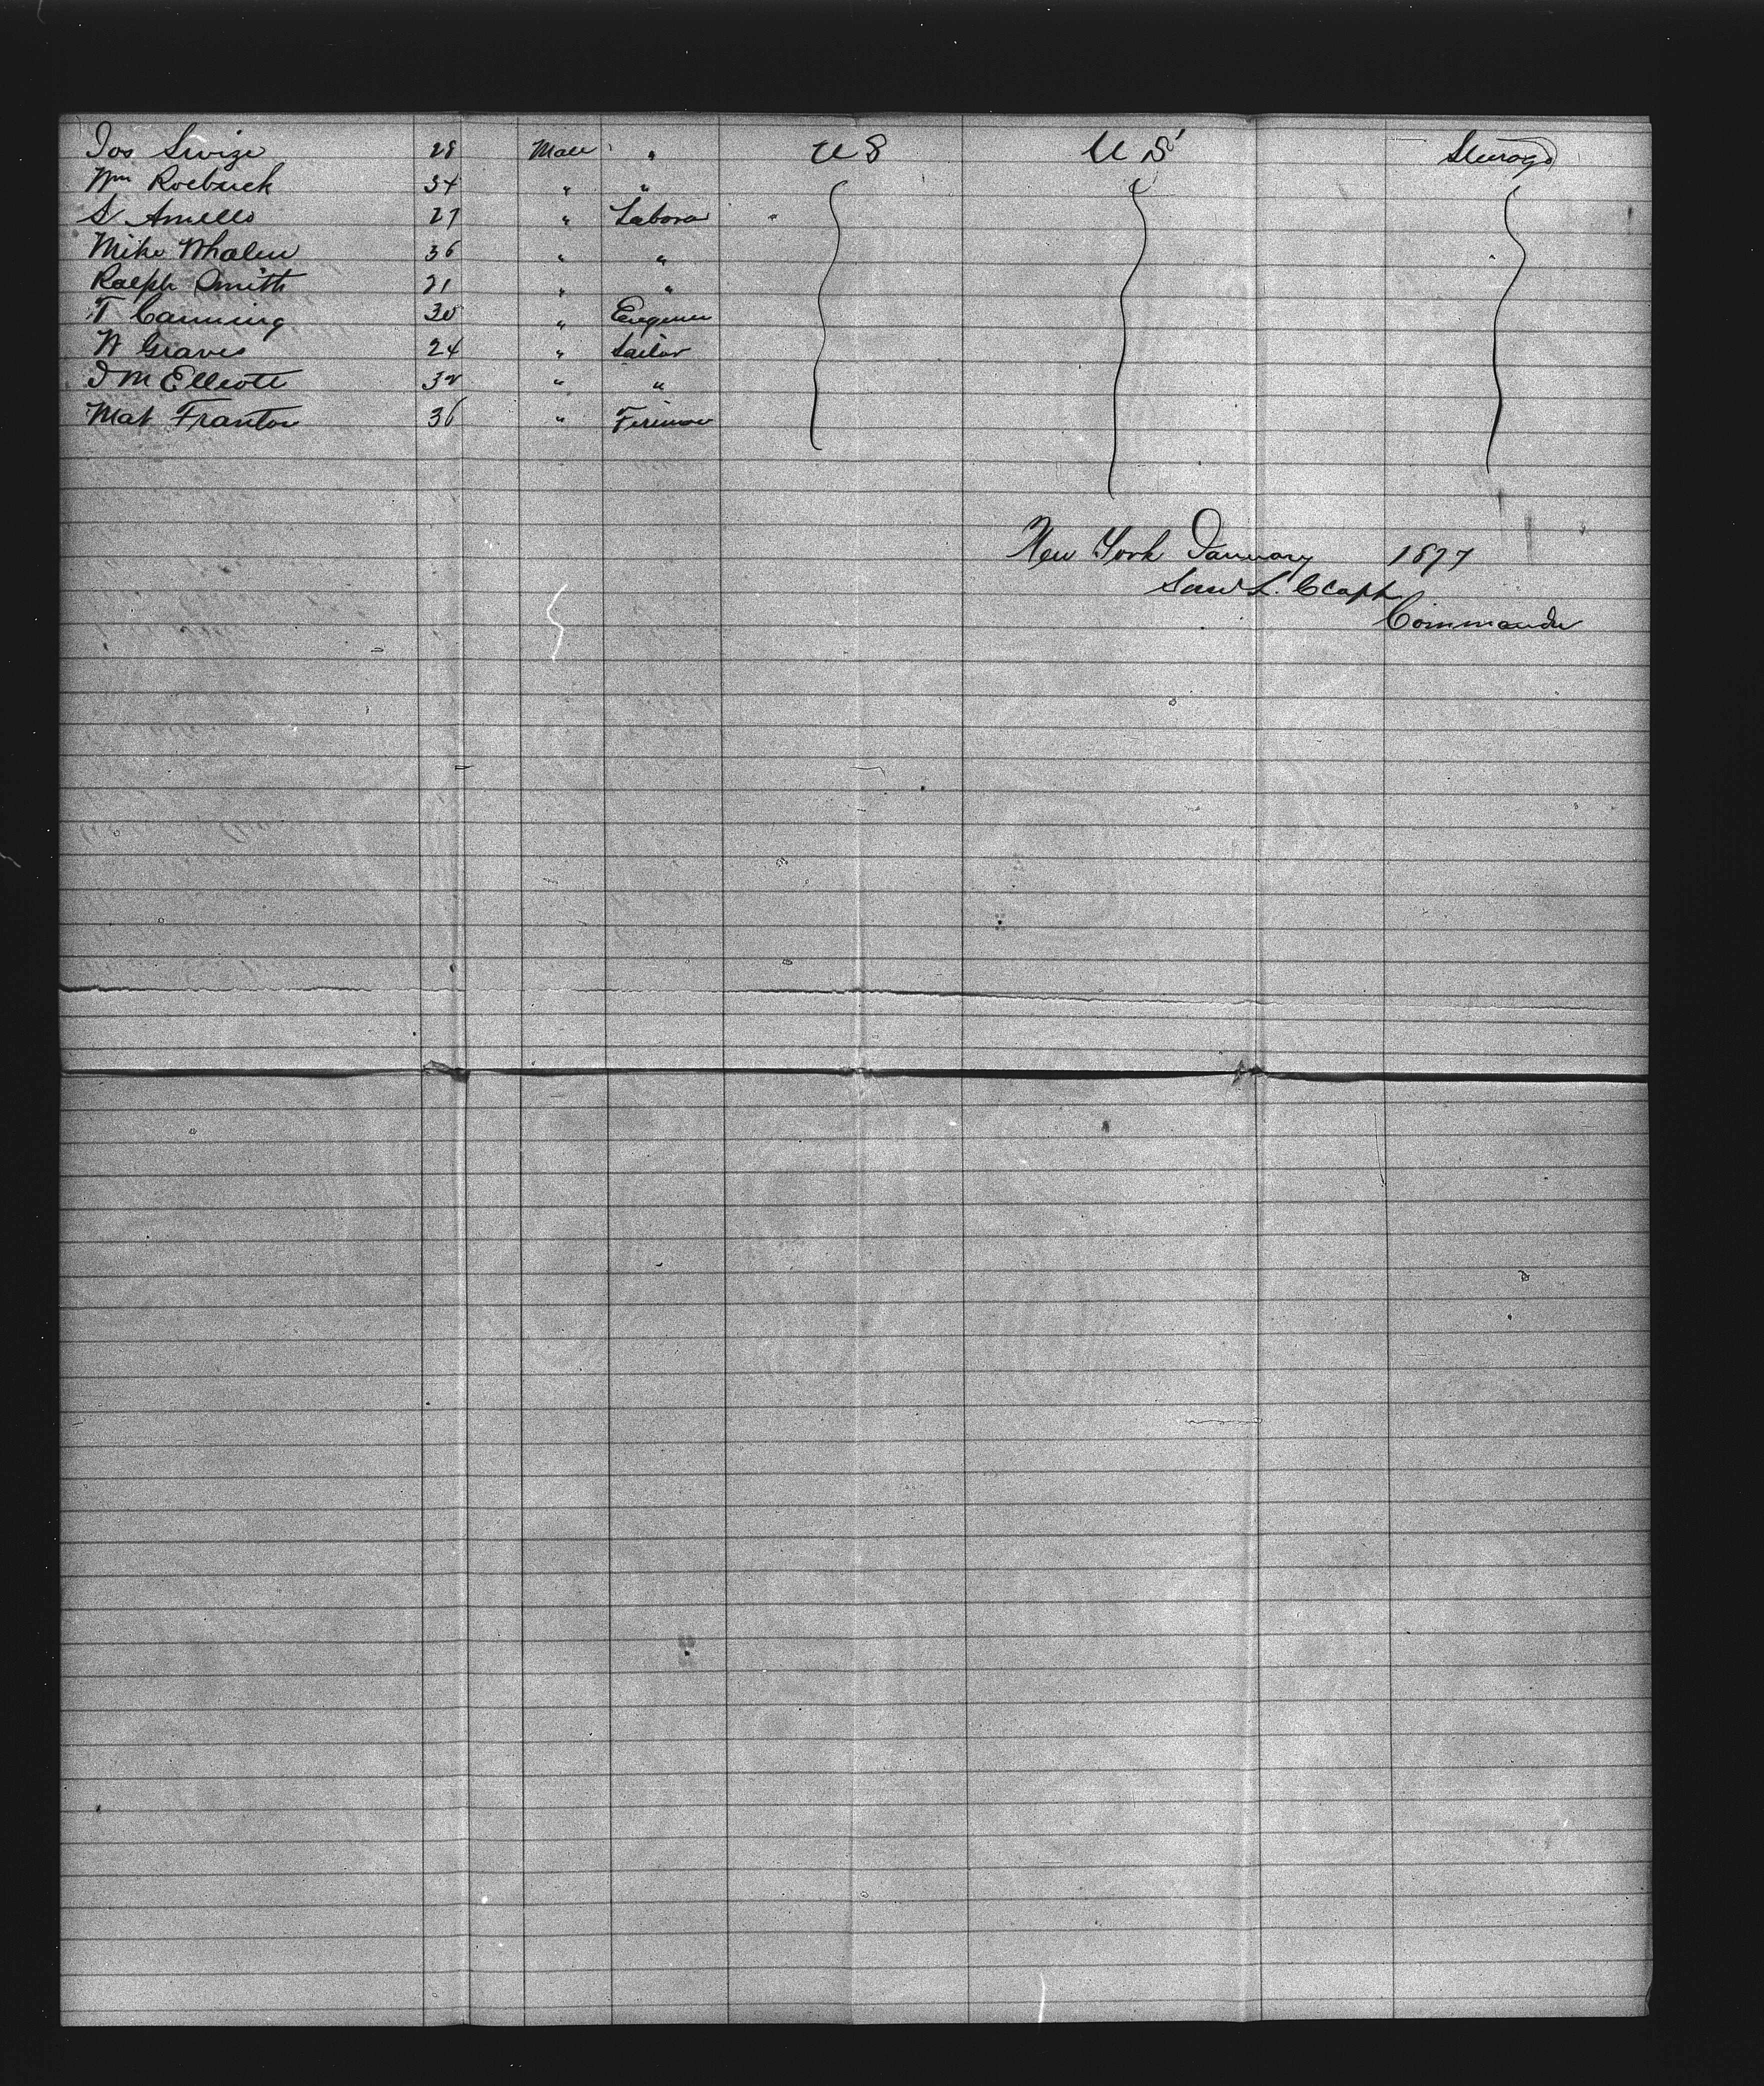 Jos Swize 28 Male " U S U S Sterage
Wm Roebuck 34 " "
S. Amells 27 " Labora
Mike Whalen 36 " "
Ralph Smith 21 " "
T Canning 30 " Engener
W Graves 24 " Sailor
J M Elliott 32 " "
Mat Franton 36 " Fireman
New York January 1877
Saml L. Clapp
Commander